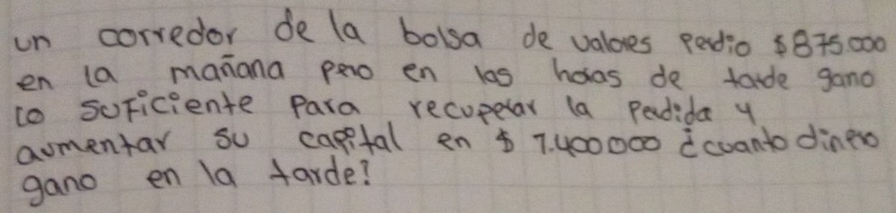 un corredor de la bolsa de valores perdio $875.000
en la mañana pero en las horas de tarde gano
lo suficiente para recuperar la perdida y
aumentar su capital en $ 7.400000 ¿cuanto dinero
gano en la tarde?